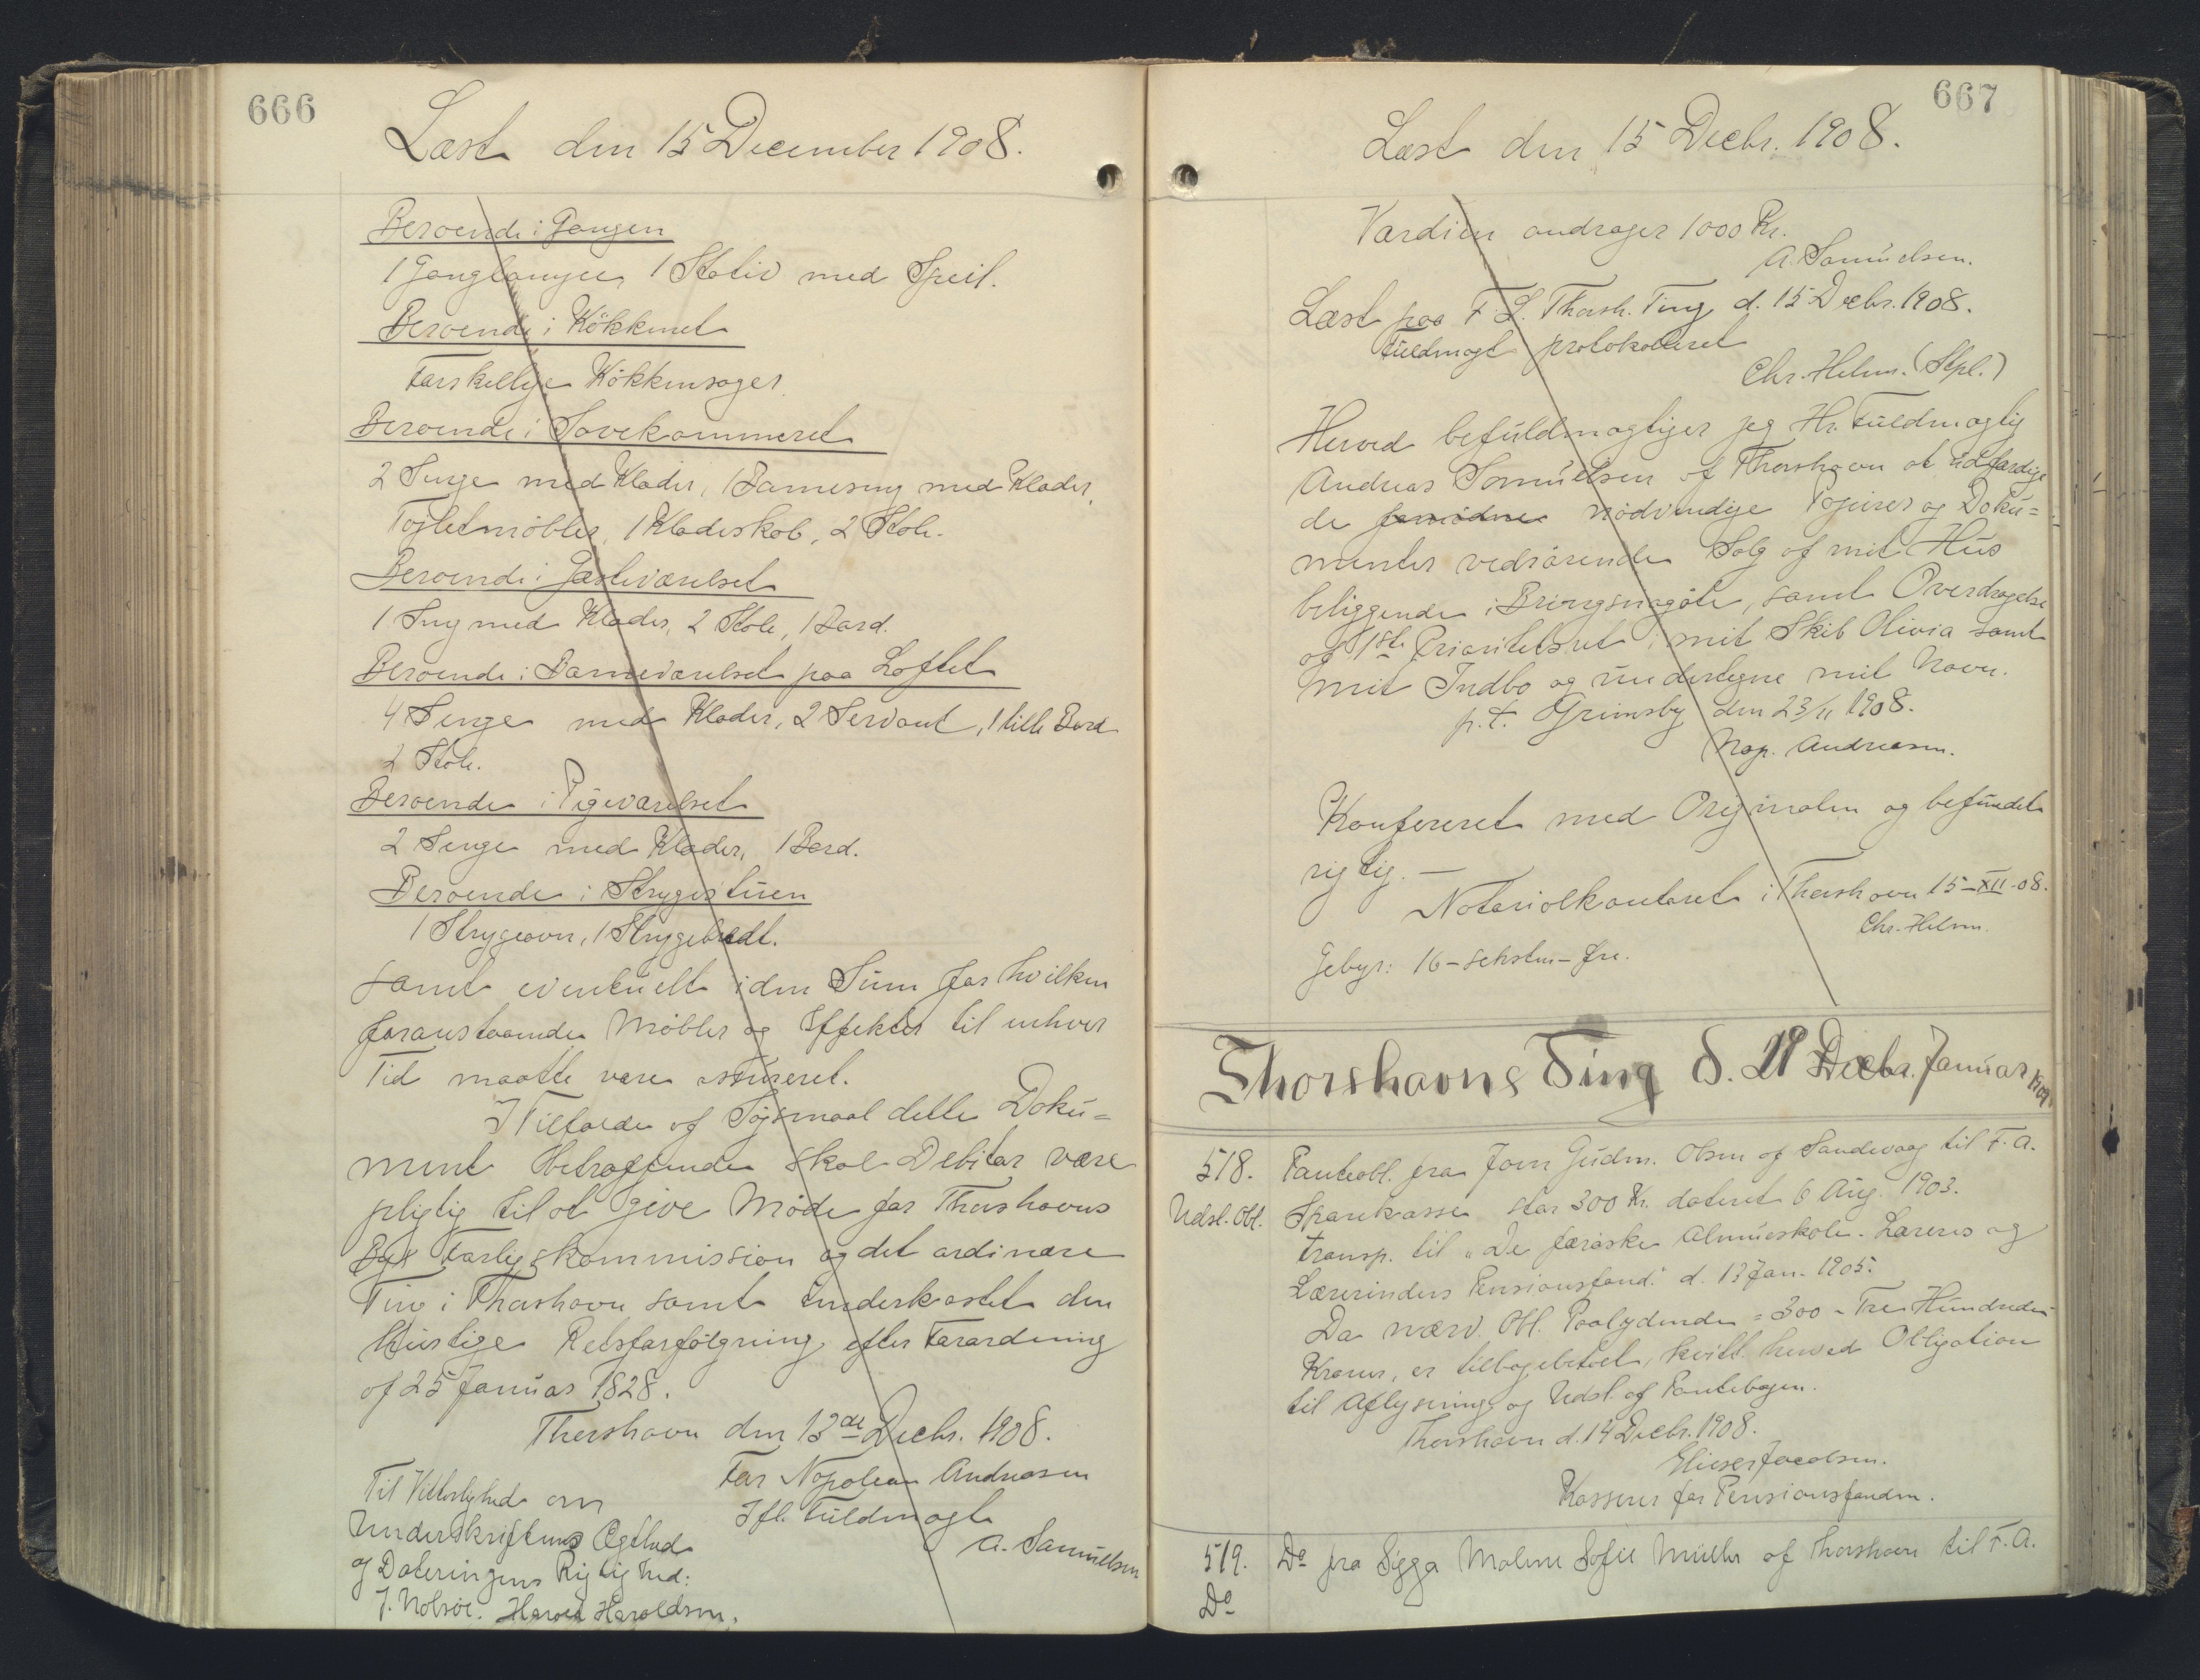 666
Læst den 15 December 1908.
Beroende i Gangen
1 Ganglampe, 1 Stativ med Speil.
Beroende i Kökkenet
Forskellige Kökkensager.
Beroende i Sovekammeret
2 Senge med Klæder, 1 Barneseng med Klæder,
Toiletmöbler, 1 Klædeskab, 2 Stole.
Beroende i Gæsteværelset
1 Seng med Klæder, 2 Stole, 1 Bord.
Beroende i Barneværelset paa Loftet
4 Senge med Klæder, 2 Servant, 1 lille Bord
2 Stole.
Beroende i Pigeværelset
2 Senge med Klæder, 1 Bord.
Beroende i Strygestuen
1 Strygeovn, 1 Strygebrædt.
samt eventuelt i den Sum for hvilken
foranstaaende Möbler og Effekter til enhver
Tid maatte være assureret.
I Tilfælde af Søgsmaal dette Doku=
ment betræffende skal Debitor være
pligtig til at give Möde for Thorshavns
Bys Forligskommission og det ordinære
Ting i Thorshavn samt underkastet den
hurtige Retsforfölgning efter Forordning
af 25 Januar 1828.
Thorshavn den 13de Decbr. 1908.
For Napolean Andreasen
Ifl. Fuldmagt
A. Samuelsen
Til Vitterlighed om
Underskriftens Ægthed
og Dateringens Rigtighed:
J. Nolsöe. Harald Haraldsen.
667
Læst den 15 Decbr. 1908.
Værdien andrager 1000 Kr.
A. Samuelsen.
Læst paa F. L. Thorsh. Ting d. 15 Decbr. 1908.
Fuldmagt protokolleret
Chr. Helm. (Stpl.)
Herved befuldmægtiger jeg Hr. Fuldmægtig
Andreas Samuelsen af Thorshavn at udfærdige
de nödvendige Papirer og Doku=
menter vedrörende Salg af mit Hus
beliggende i Bringsnagöte, samt Overdragelse
af 1ste Prioritetsret i mit Skib Olivia samt
mit Indbo og undertegne mit Navn.
p.t. Grimsby den 23/11 1908.
Nap. Andreasen.
Konfereret med Originalen og befundet
rigtig. —
Notarialkontoret i Thorshavn 15-XII-08.
Chr. Helm.
Gebyr: 16 - seksten - Øre.
Thorshavns Ting d. 19 Decbr. Januar 1909.
518. Panteobl. fra Joen Gudm. Olsen af Sandevaag til F. A.
Udsl. Obl. Sparekasse stor 300 Kr. dateret 6 Aug. 1903.
transp. til "De færøske Almueskole-Læreres og
Lærerinders Pensionsfond." d. 13 Jan. 1905.
Da nærv. Obl. Paalydende = 300 - Tre Hundrede -
Kroner, er tilbagebetalt, kvitt. herved Obligation
til Aflysning og Udsl. af Pantebogen.
Thorshavn d. 14 Decbr. 1908.
Elieser Jacobsen.
Kasserer for Pensionsfonden.
519. Do fra Sigga Malene Sofie Müller af Thorshavn til F. A.
Do